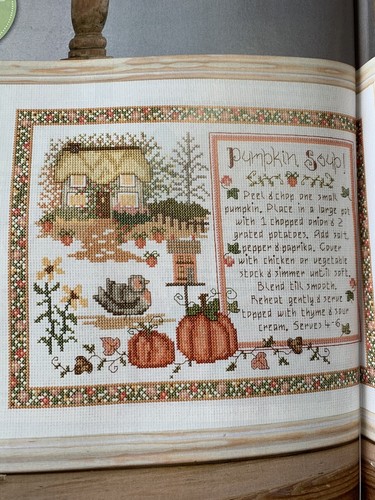 Pumpkin Soup!
Peel & chop one small
pumpkin. Place in a large pot
with 1 chopped onion & 2
grated potatoes. Add salt,
pepper & paprika. Cover
with chicken or vegetable
stock & simmer until soft.
Blend till smooth.
Reheat gently & serve
topped with thyme & sour
cream. Serves 4-6